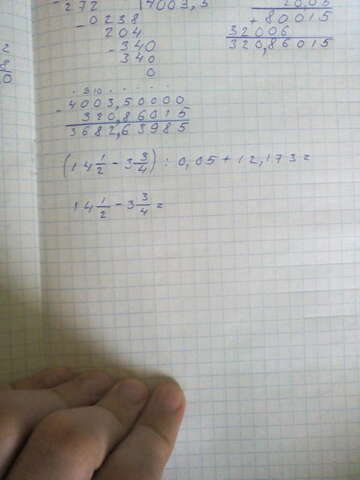 272 4003,5
-0238
204
-340
340
0
20,05
+80015
32006
320,86015
- 4003,50000
320,86015
3682,63985
(14 1/2 - 3 3/4) : 0,05 + 12,173 =
14 1/2 - 3 3/4 =